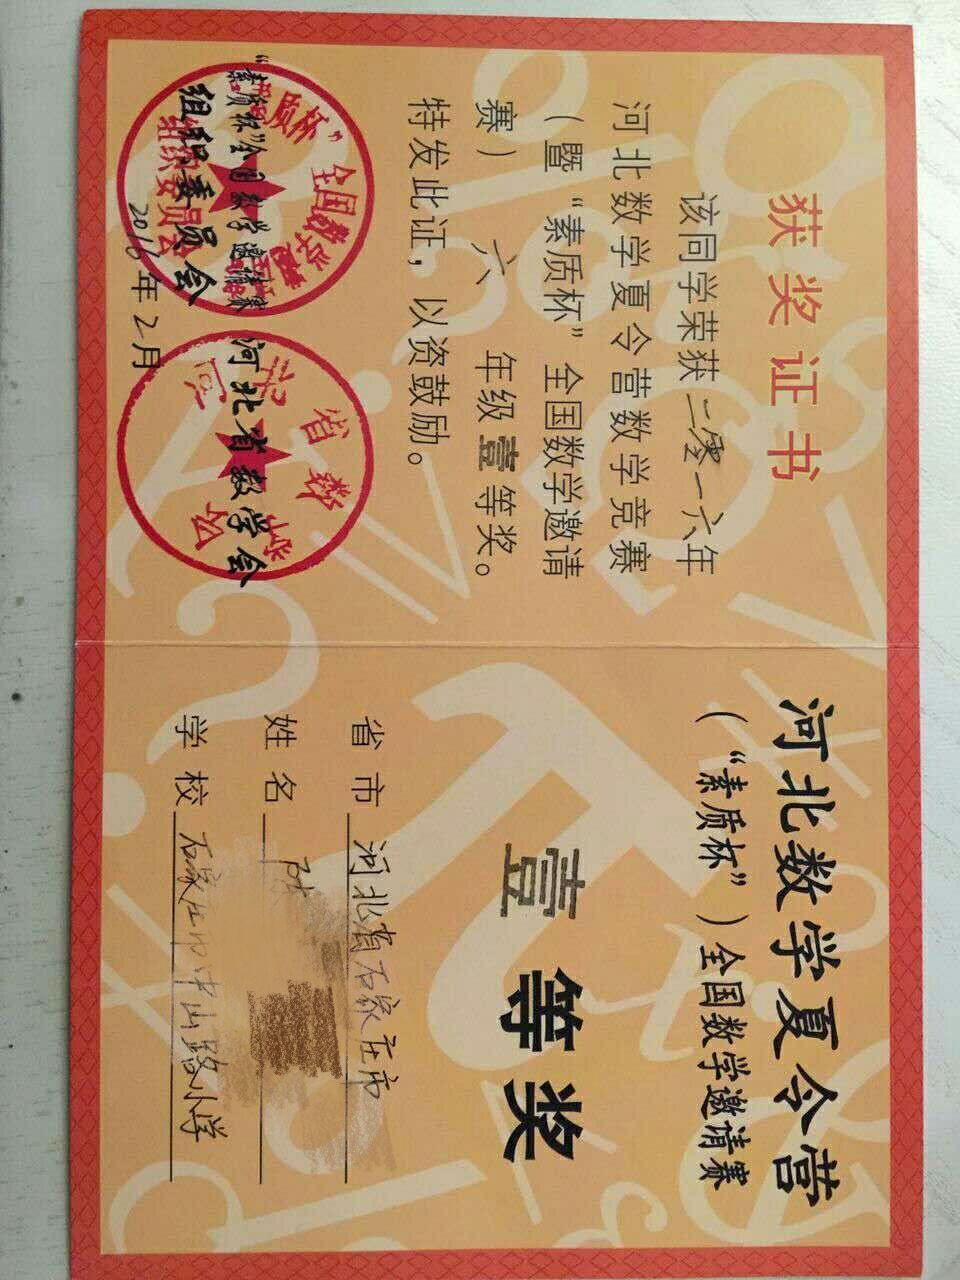 获奖证书
该同学荣获二零一六年
河北数学夏令营数学竞赛
（暨“素质杯”全国数学邀请
赛） 六 年级壹等奖。
特发此证，以资鼓励。
“素质杯”全国数学邀请赛
组织委员会
河北省数学会
2016年2月
河北数学夏令营
（“素质杯”）全国数学邀请赛
壹 等 奖
省 市 河北省石家庄市
姓 名
学 校 石家庄市中山路小学